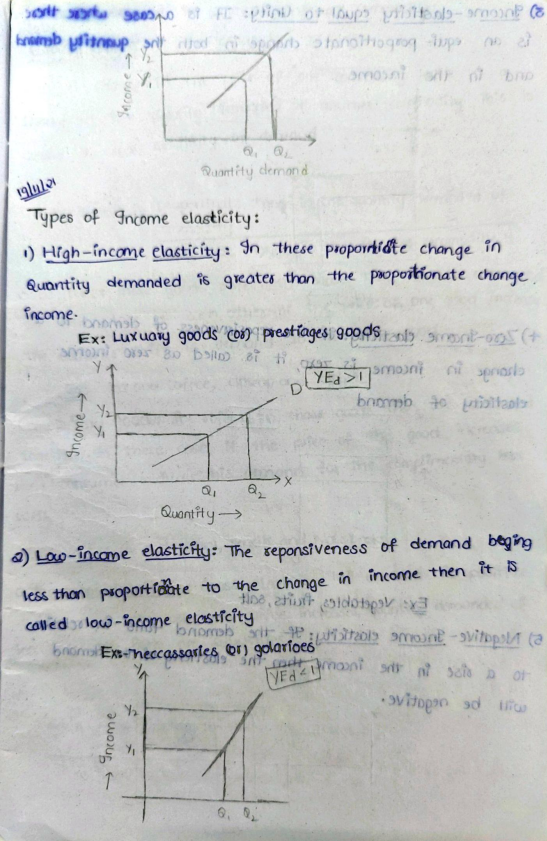 Y2
Y1
Income →
Q1 Q2
Quantity demand
19/11/21
Types of Income elasticity:
1) High-income elasticity: In these proportiate change in
Quantity demanded is greates than the proportionate change
income.
Ex: Luxuary goods (or) prestiages goods
Y
D YEd>1
Y2
Y1
Income →
Q1 Q2 X
Quantity →
2) Low-income elasticity: The reponsiveness of demand beging
less than proportionate to the change in income then it is
called low-income elasticity
Ex:- neccassaries (or)
Y
YEd<1
Y2
Y1
→ Income
Q1 Q2